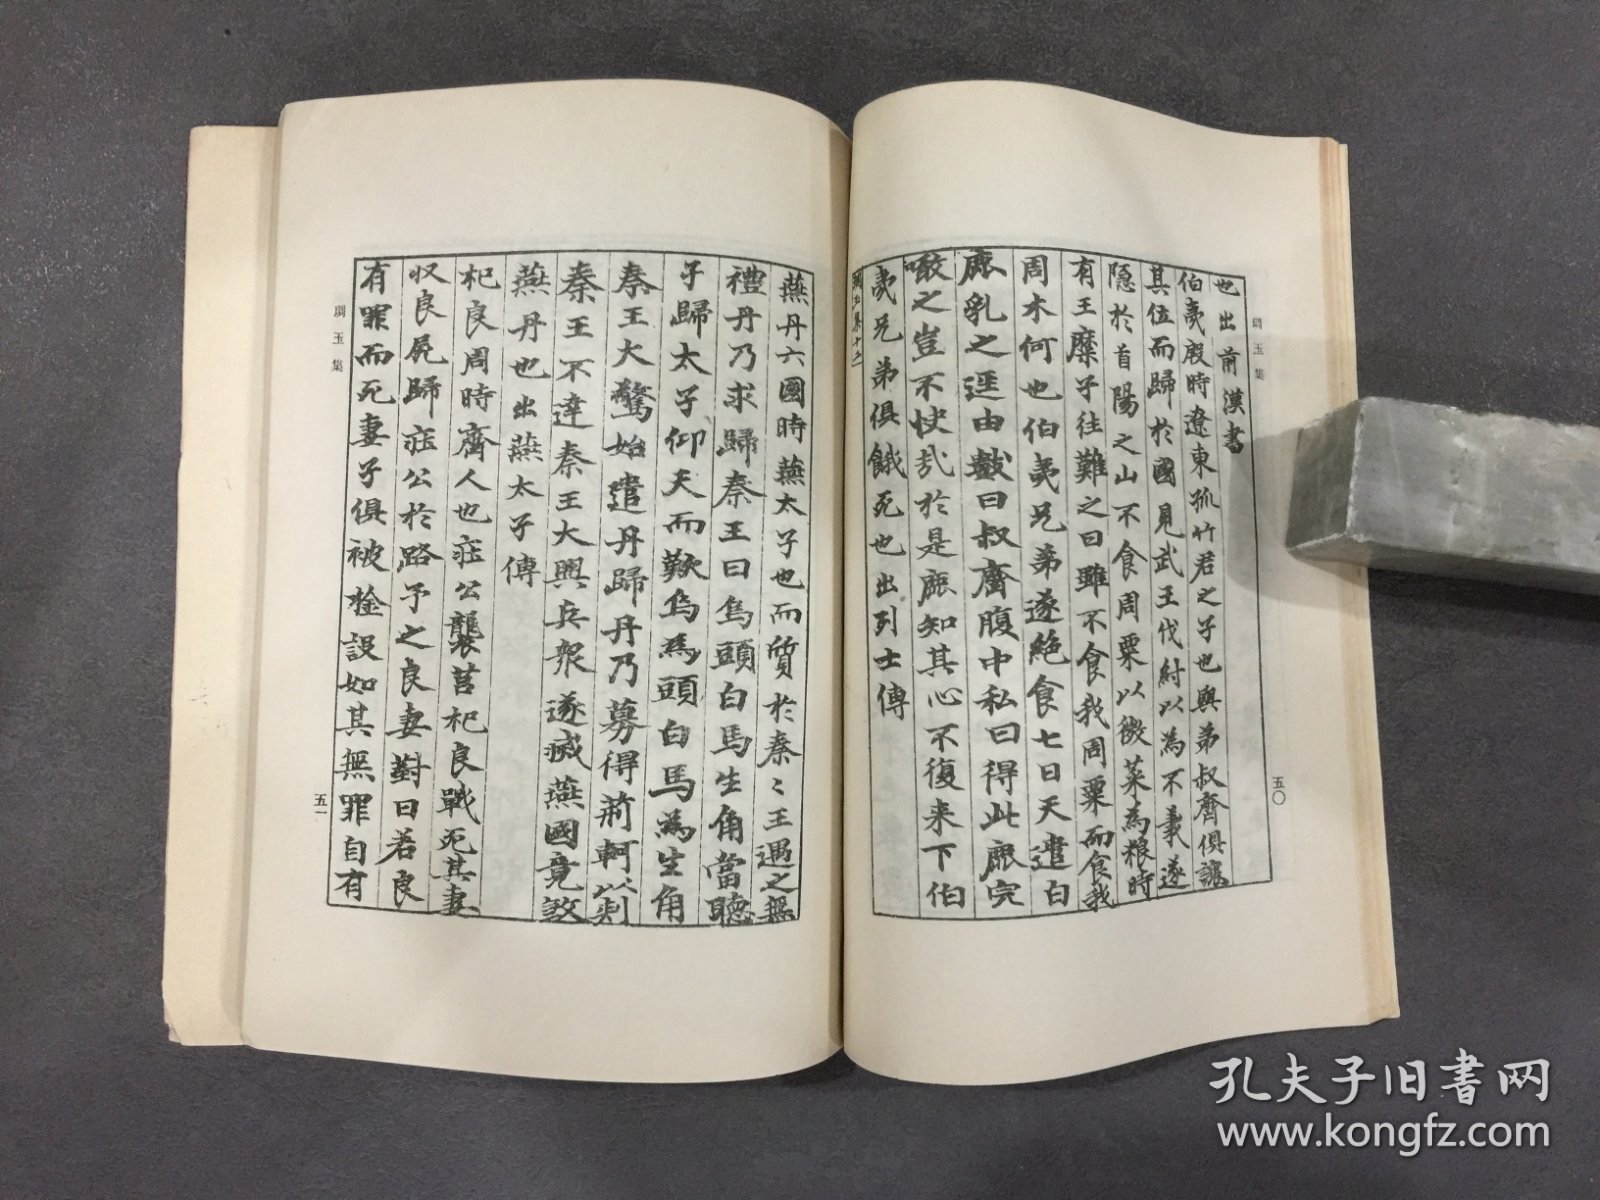 琱玉集
五〇
也出前漢書
伯夷殷時遼東孤竹君之子也與弟叔齊俱讓
其位而歸於國見武王伐紂以為不義遂
隠於首陽之山不食周粟以微菜為粮時
有王糜子往難之曰雖不食我周粟而食我
周木何也伯夷兄弟遂絶食七日天遣白
鹿乳之逕由數曰叔齊腹中私曰得此鹿完
噉之豈不快哉於是鹿知其心不復来下伯
夷兄弟俱餓死也出列士傳
燕丹六國時燕太子也而質於秦〻王遇之無
禮丹乃求歸秦王曰烏頭白馬生角當聴
子歸太子仰天而歎烏為頭白馬為生角
秦王大驚始遣丹歸丹乃募得荊軻以刺
秦王不達秦王大興兵衆遂滅燕國竟敓
燕丹也出燕太子傳
杞良周時齊人也莊公襲莒杞良戰死其妻
収良屍歸莊公於路予之良妻對曰若良
有罪而死妻子俱被 設如其無罪自有
琱玉集
五一
孔夫子旧书网
www.kongfz.com